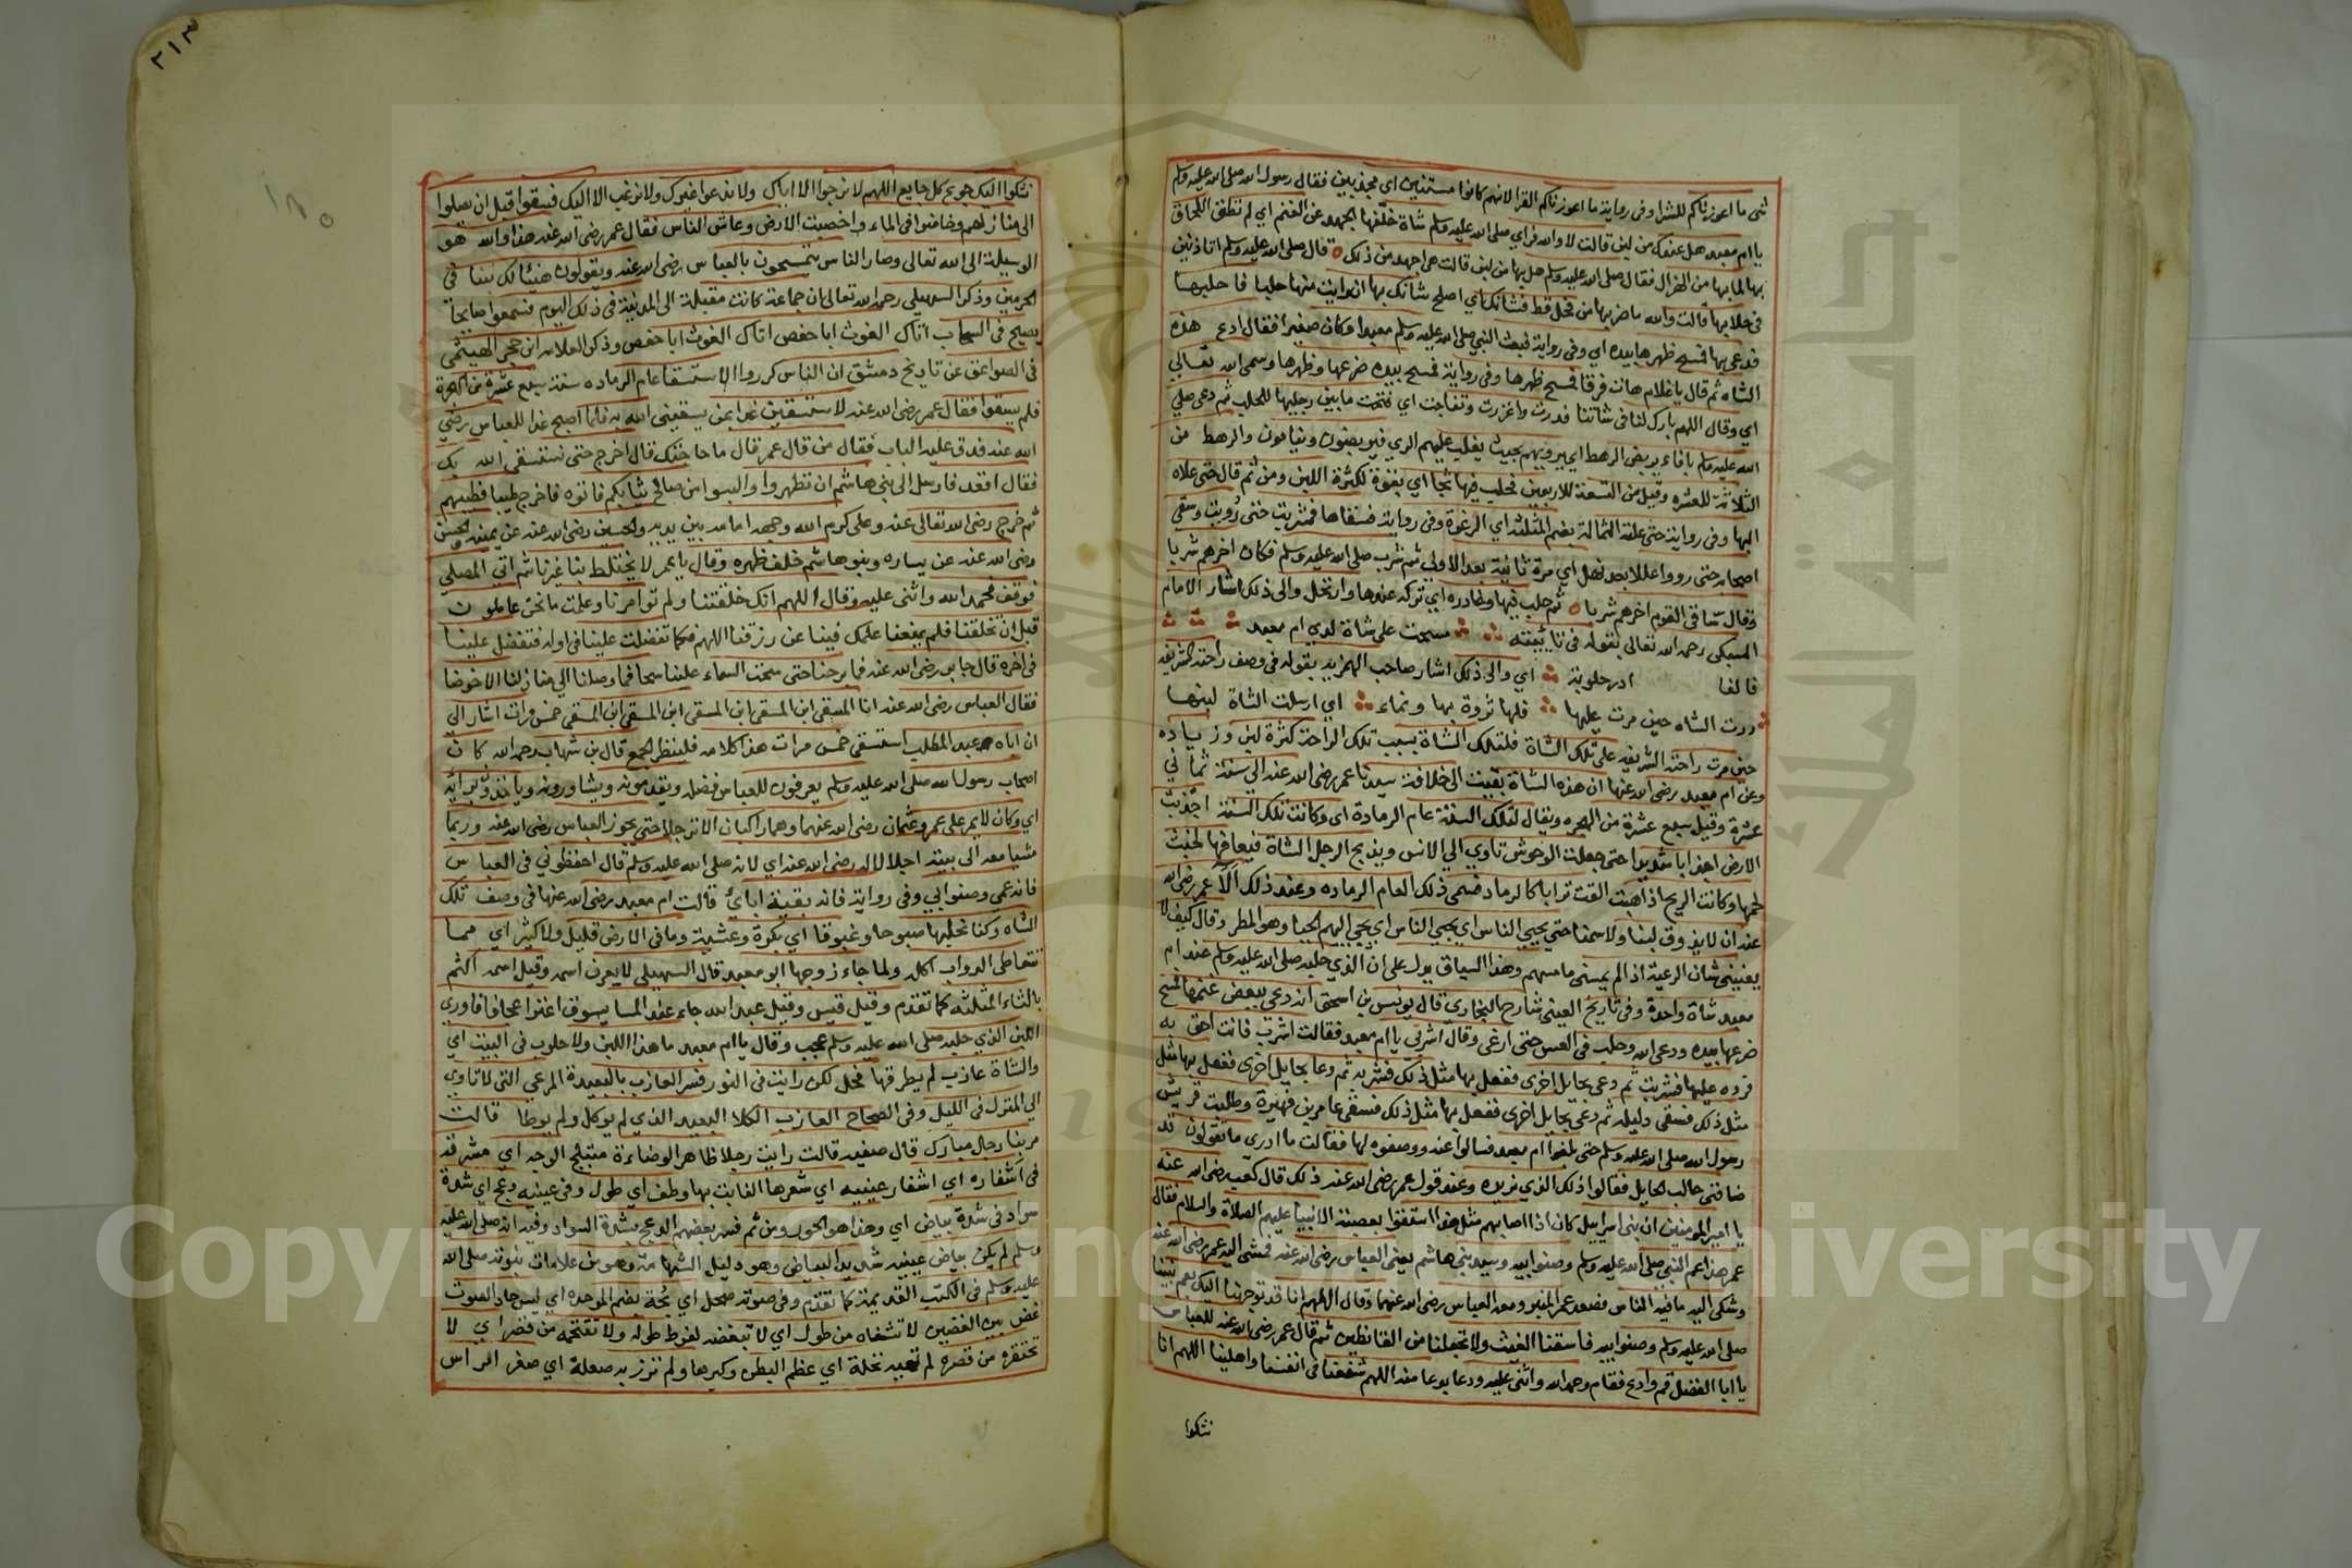 شي ما اعوزناكم للشرا وفي رواية ما اعوزناكم القرا لانهم كانوا مسنتين اي مجذبين فقال رسول الله صلى الله عليه وسلم
يا ام معبد هل عندك من لبن قالت لا والله فراي صلى الله عليه وسلم شاة خلفها الجهد عن الغنم اي لم تطق اللحاق
بها لما بها من الهزال فقال صلى الله عليه وسلم هل بها من لبن قالت هي اجهد من ذلك قال صلى الله عليه وسلم اتاذنين
في حلابها قالت والله ما ضربها من فحل قط فشانك اي اصلح شانك بها ان رايت منها حلبا فاحلبها
فدعى بها فمسح ظهرها بيده اي وفي رواية فبعث النبي صلى الله عليه وسلم معبدا وكان صغيرا فقال ادع هذه
الشاه ثم قال يا غلام هات فرقا فمسح ظهرها وفي رواية فمسح بيده ضرعها وظهرها وسمى الله تعالي
اي وقال اللهم بارك لنا في شاتنا فدرت واغزرت وتفاجت اي فتحت ما بين رجليها للحلب ثم دعى صلي
الله عليه وسلم باناء يربض الرهط اي يرويهم بحيث يغلب عليهم الري فيربضون وينامون والرهط من
الثلاثة للعشره وقيل من التسعة للاربعين فحلب فيها ثجا اي بقوة لكثرة اللبن ومن ثم قال حتى علاه
البها وفي رواية حتى علته الثمالة بضم المثلثة اي الرغوة وفي رواية فسقاها فشربت حتى رويت وسقي
اصحابه حتى رووا عللا بعد نهل اي مرة ثانية بعد الاولى ثم شرب صلى الله عليه وسلم فكان اخرهم شربا
وقال ساقي القوم اخرهم شربا ثم حلب فيها وغادره اي تركه عندها وارتحل والى ذلك اشار الامام
السبكي رحمه الله تعالى بقوله في تائيته مسحت على شاة لدي ام معبد
فالفا ادر حلوبة اي والى ذلك اشار صاحب الهمزية بقوله في وصف راحته الشريفه
درت الشاه حين مرت عليها فلها ثروة بها ونماء اي ارسلت الشاة لبنها
حين مرت راحته الشريفه على تلك الشاة فلتلك الشاة بسبب تلك الراحة كثرة لبن وزياده
وعن ام معبد رضي الله عنها ان هذه الشاة بقيت الى خلافة سيدنا عمر رضي الله عنه الي سنة ثماني
عشرة وقيل سبع عشرة من الهجره ويقال لتلك السنة عام الرمادة اي وكانت تلك السنة اجذبت
الارض اجذابا شديدا حتى جعلت الوحوش تاوي الي الانس ويذبح الرجل الشاة فيعافها لخبث
لحمها وكانت الريح اذا هبت القت ترابا كالرماد فسمى ذلك العام الرماده وعند ذلك آلا عمر رضي الله
عنه ان لا يذوق لبنا ولا سمنا حتي يحيي الناس اي يجي الناس اي يجي اليهم الحيا وهو المطر وقال كيف لا
يعنيني شان الرعية اذا لم يمسني ما مسهم وهذا السياق يدل على ان الذي حلبه صلى الله عليه وسلم عند ام
معبد شاة واحدة وفي تاريخ العيني شارح البخاري قال يونس بن اسحق انه دعى ببعض غنمها فمسح
ضرعها بيده ودعى الله وحلب في العس حتى ارغى وقال اشربي يا ام معبد فقالت اشرب فانت احق به
فرده عليها فشربت ثم دعى بحايل اخرى ففعل بها مثل ذلك فشربه ثم دعا بحايل اخرى ففعل بها مثل
مثل ذلك فسقى دليله ثم دعى بحايل اخرى ففعل بها مثل ذلك فسقى عامر بن فهيرة وطلبت قريش
رسول الله صلى الله عليه وسلم حتى بلغوا ام معبد فسالوا عنه ووصفوه لها فقالت ما ادري ما تقولون قد
ضافني حالب الحايل فقالوا ذلك الذي نريده وعند قول عمر رضي الله عنه ذلك قال كعب رضي الله عنه
يا امير المومنين ان بني اسراييل كان اذا اصابهم مثل هذا استسقوا بعصبة الانبيا عليهم الصلاة والسلام فقال
عمر هذا عم النبي صلى الله عليه وسلم وصنو ابيه وسيد بني هاشم يعني العباس رضي الله عنه فمشى اليه عمر رضي الله عنه
وشكى اليه ما فيه الناس فصعد عمر المنبر ومعه العباس رضي الله عنهما وقال اللهم انا قد توجهنا اليك بعم نبينا
صلى الله عليه وسلم وصنو ابيه فاسقنا الغيث ولا تجعلنا من القانطين ثم قال عمر رضي الله عنه للعباس
يا ابا الفضل قم وادع فقام وحمد الله واثنى عليه ودعا بدعا منه اللهم شفعنا في انفسنا واهلينا اللهم انا
نشكوا
٢١٣
نشكوا اليك جوع كل جايع اللهم لا نرجوا الا اياك ولا ندعوا غيرك ولا نرغب الا اليك فسقوا قبل ان يصلوا
الى منازلهم وخاضوا في الماء واخصبت الارض وعاش الناس فقال عمر رضي الله عنه هذا والله هو
الوسيلة الى الله تعالى وصار الناس يتمسحون بالعباس رضي الله عنه ويقولون هنيئا لك سقا في
الحرمين وذكر السهيلي رحمه الله تعالى ان جماعة كانت مقبلة الى المدينة في ذلك اليوم فسمعوا صايحا
يصيح في السحاب اتاك الغوث ابا حفص اتاك الغوث ابا حفص وذكر العلامه ابن حجر الهيتمي
في الصواعق عن تاريخ دمشق ان الناس كرروا الاستسقا عام الرماده سنة سبع عشرة من الهجرة
فلم يسقوا فقال عمر رضي الله عنه لاستسقين غدا بمن يسقيني الله به فلما اصبح غدا للعباس رضي
الله عنه فدق عليه الباب فقال من قال عمر قال ما حاجتك قال اخرج حتى نستسقى الله بك
فقال اقعد فارسل الى بني هاشم ان تطهروا والبسوا من صالح ثيابكم فاتوه فاخرج طيبا فطيبهم
ثم خرج رضي الله تعالى عنه وعلي كرم الله وجهه امامه بين يديه والحسين رضي الله عنه عن يمينه والحسن
رضي الله عنه عن يساره وبنو هاشم خلف ظهره وقال يا عمر لا يختلط بنا غيرنا ثم اتى المصلي
فوقف فحمد الله واثنى عليه وقال اللهم انك خلقتنا ولم توامرنا وعلمت ما نحن عاملون
قبل ان تخلقنا فلم يمنعنا علمك فينا عن رزقنا اللهم فكما تفضلت علينا في اوله فتفضل علينا
في اخره قال جابر رضي الله عنه فما برحنا حتى سحت السماء علينا سحا فما وصلنا الي منازلنا الا خوضا
فقال العباس رضي الله عنه انا المسقى ابن المسقى ابن المسقى ابن المسقى ابن المسقى خمس مرات اشار الي
ان اباه عبد المطلب استسقى خمس مرات هذا كلامه فلينظر الجمع قال بن شهاب رحمه الله كان
اصحاب رسول الله صلى الله عليه وسلم يعرفون للعباس فضله ويقدمونه ويشاورونه وياخذون برايه
اي وكان لا يمر على عمر وعثمان رضي الله عنهما وهما راكبان الا نزجلا حتى يجوز العباس رضي الله عنه وربما
مشيا معه الى بيته اجلالا له رضي الله عنه اي لانه صلى الله عليه وسلم قال احفظوني في العباس
فانه عمي وصنو ابي وفي رواية فانه بقية ابائي قالت ام معبد رضي الله عنها في وصف تلك
الشاه وكنا نحلبها صبوحا وغبوقا اي بكرة وعشية وما في الارض قليل ولا كثير اي مما
تتعاطى الدواب اكله ولما جاء زوجها ابو معبد قال السهيلي لا يعرف اسمه وقيل اسمه اكثم
بالثاء المثلثه كما تقدم وقيل قيس وقيل عبد الله جاء عند المسا يسوق اعنزا عجافا فراى
اللبن الذي حلبه صلى الله عليه وسلم عجب وقال يا ام معبد ما هذا اللبن ولا حلوب في البيت اي
والشاة عازب لم يطرقها فحل لكن رايت في النور فسر العازب بالبعيدة المرعي التي لا تاوي
الي المنزل في الليل وفي الصحاح العازب الكلا البعيد الذي لم يوكل ولم يوطا قالت
مر بنا رجل مبارك قال صفيه قالت رايت رجلا ظاهر الوضاءة متبلج الوجه اي مشرقه
في اشفاره اي اشفار عينيه اي شعرها النابت بها وطف اي طول وفي عينيه دعج اي شدة
سواد في شدة بياض اي وهذا هو الحور ومن ثم فسر بعضهم الدعج بشدة السواد وفيه انه صلى الله عليه
وسلم لم يكن بياض عينيه شديد البياض وهو دليل الشهامة وهو من علامات نبوته صلى الله
عليه وسلم في الكتب القديمة كما تقدم وفي صوته صحل اي بحة بضم الموحده اي ليس حاد الصوت
غصن بين الغصنين لا تشناه من طول اي لا تبغضه لفرط طوله ولا تقتحمه من قصر اي لا
تحتقره من قصره لم تعبه ثجلة اي عظم البطن وكبرها ولم تزر به صعلة اي صغر الراس
Copyright © King Saud University